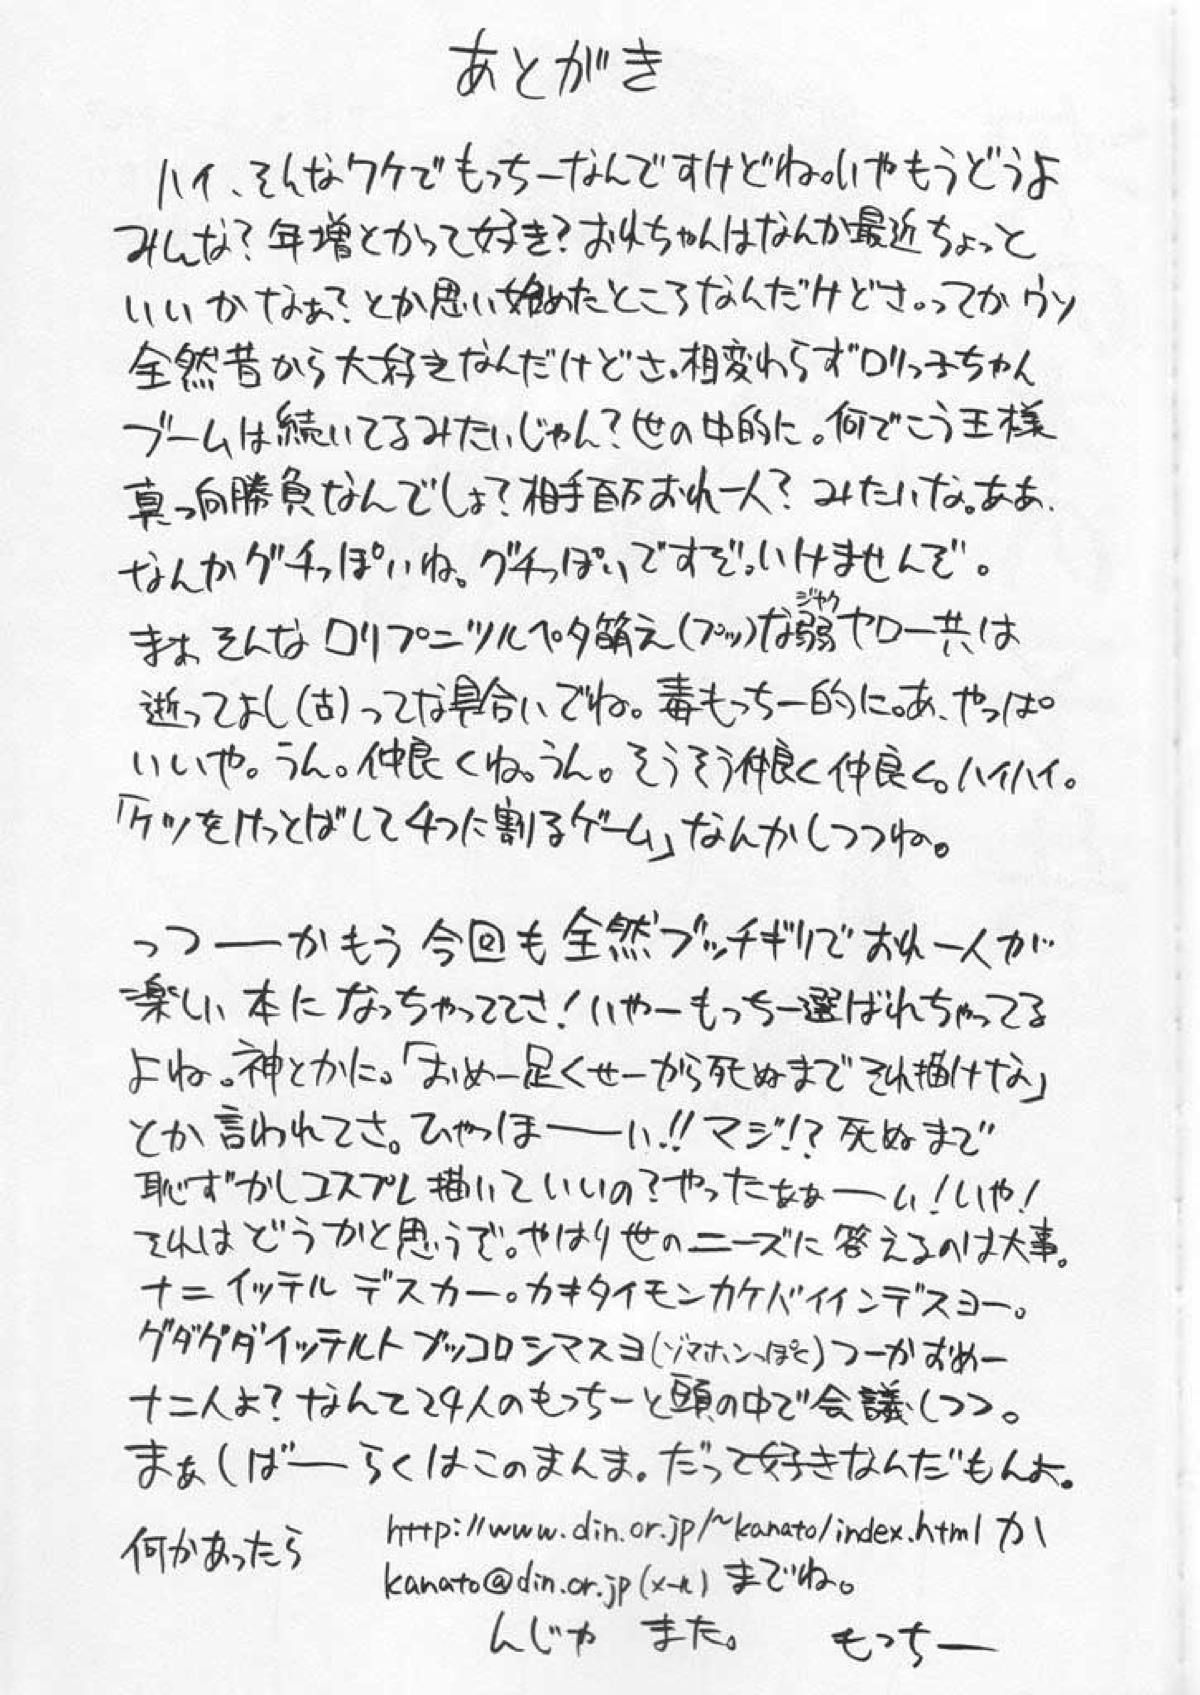 あとがき
ハイ、そんなワケでもっちーなんですけどね。いやもうどうよ
みんな?年増とかって好き?おれちゃんはなんか最近ちょっと
いいかなぁ?とか思い始めたところなんだけどさ。ってかウソ
全然昔から大好きなんだけどさ。相変わらずロリっ子ちゃん
ブームは続いてるみたいじゃん?世の中的に。何でこう王様
真っ向勝負なんでしょ?相手百万おれ一人?みたいな。ああ、
なんかグチっぽいね。グチっぽいですぞ。いけませんぞ。
まぁ、そんなロリプニツルペタ萌え(プッ)な弱ヤロー共は
ジャク
逝ってよし(古)ってな具合いでね。毒もっちー的に。あ、やっぱ
いいや。うん。仲良くね。うん。そうそう仲良く仲良く。ハイハイ。
「ケツをけっとばして4つに割るゲーム」なんかしつつね。
っつーかもう今回も全然ブッチギリでおれ一人が
楽しい本になっちゃっててさ!いやーもっちー選ばれちゃってる
よね。神とかに。「おめー足くせーから死ぬまでそれ描けな」
とか言われてさ。ひゃっほーーい!!マジ!?死ぬまで
恥ずかしコスプレ描いていいの?やったぁぁーい!いや!
それはどうかと思うぞ。やはり世のニーズに答えるのは大事。
ナニイッテルデスカー。カキタイモンカケバイインデスヨー。
グダグダイッテルトブッコロシマスヨ(ゾマホンっぽく)つーかおめー
ナニ人よ?なんて24人のもっちーと頭の中で会議しつつ。
まぁしばーらくはこのまんま。だって好きなんだもんよ。
何かあったら http://www.din.or.jp/~kanato/index.html か
kanato@din.or.jp(メール)までね。
んじゃ また。 もっちー